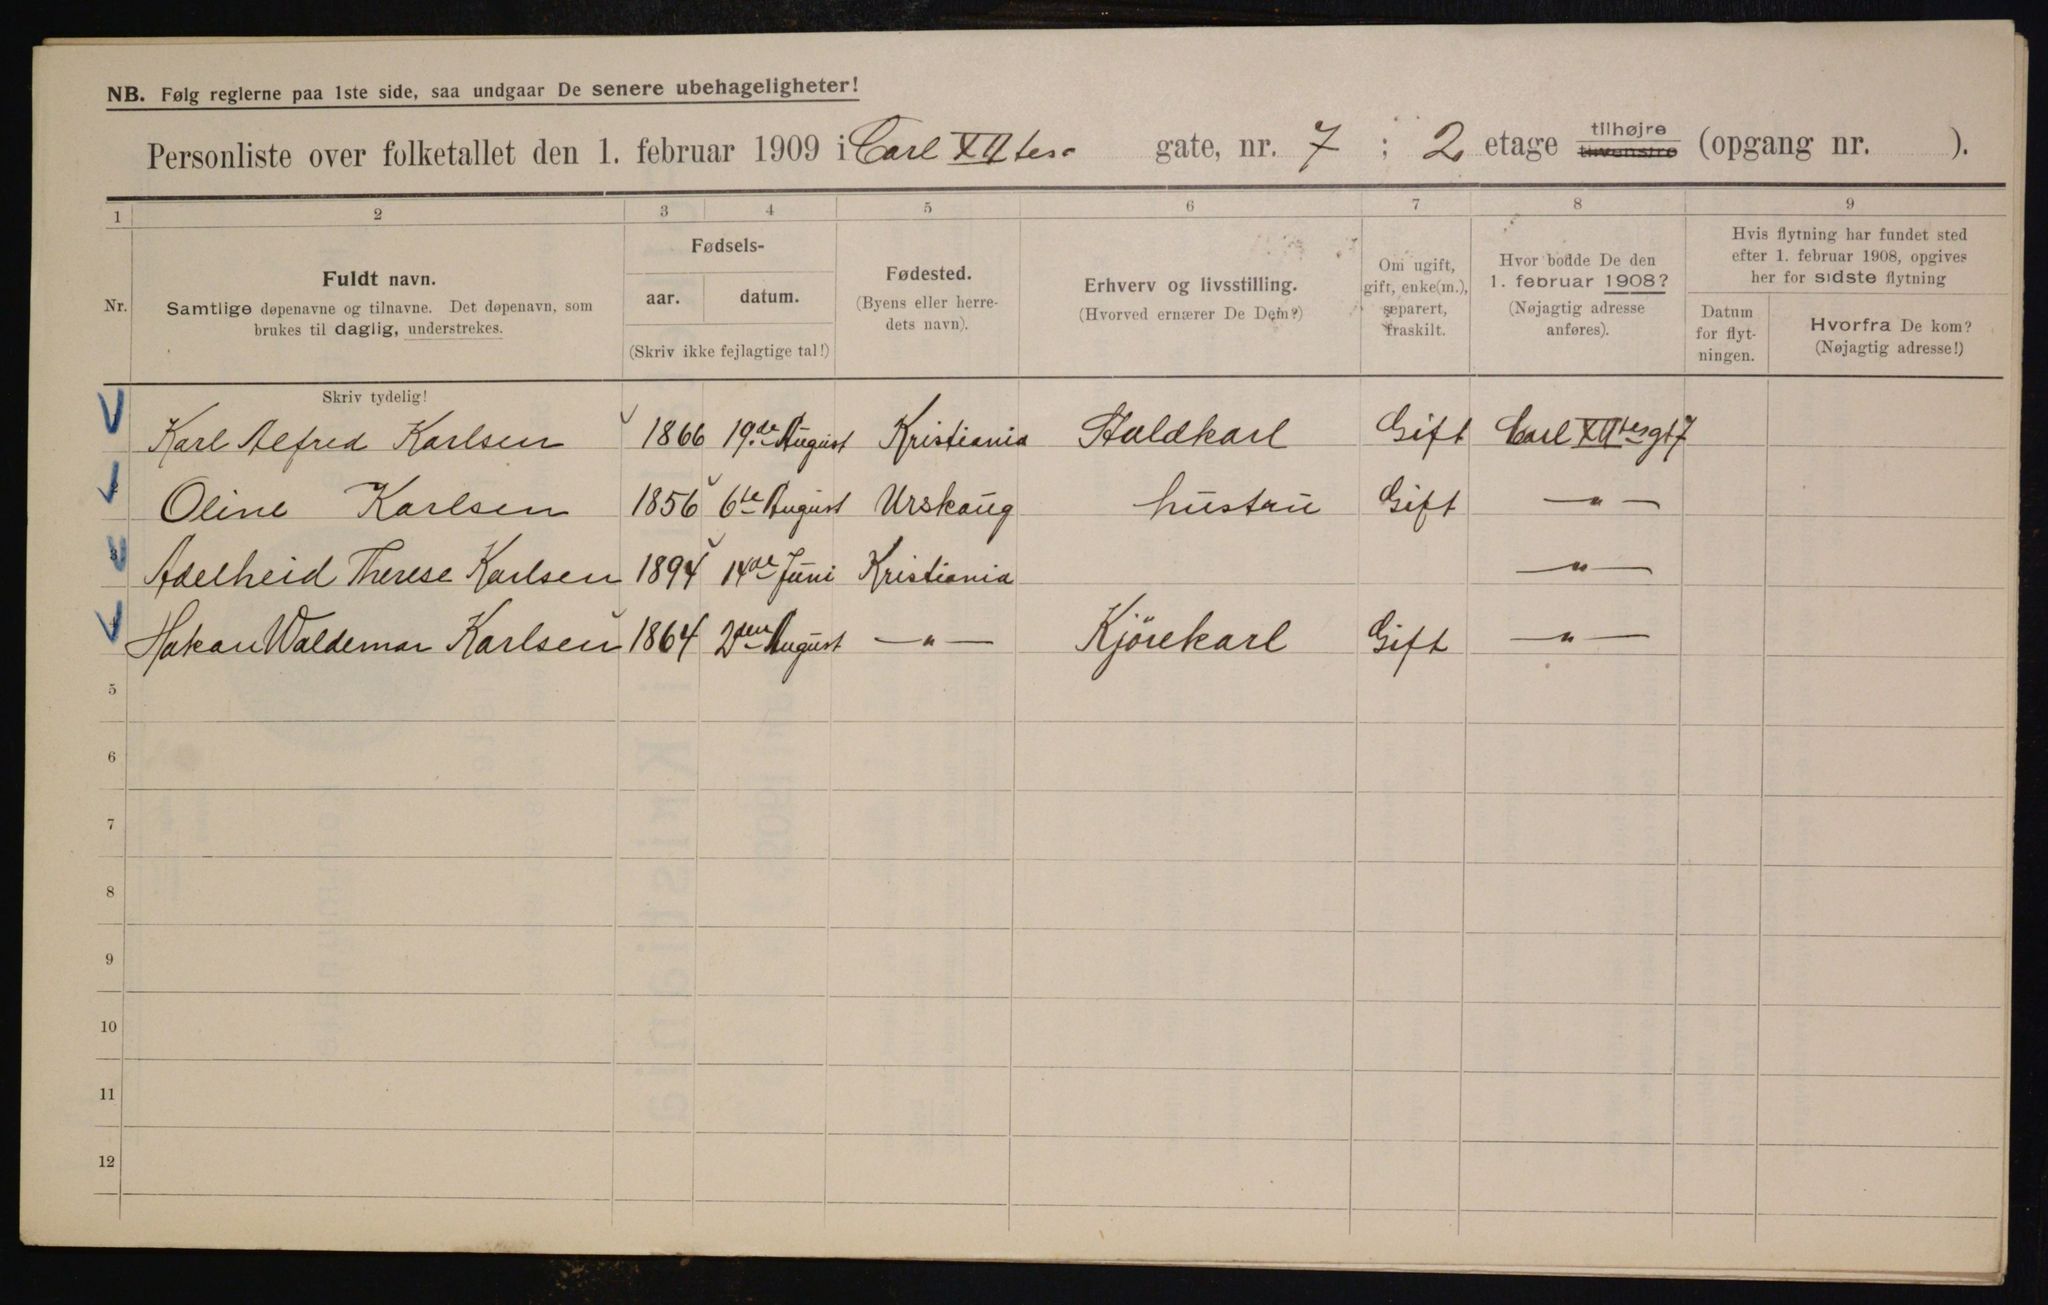 NB. Følg reglerne paa 1ste side, saa undgaar De senere ubehageligheter!
Personliste over folketallet den 1. februar 1909 i Carl XIItes gate, nr. 7 ; 2 etage tilhøjre tilvenstre (opgang nr. ).
1 2 3 4 5 6 7 8 9
Nr.
Fuldt navn.
Samtlige døpenavne og tilnavne. Det døpenavn, som
brukes til daglig, understrekes.
Fødsels-
aar. datum.
(Skriv ikke fejlagtige tal!)
Fødested.
(Byens eller herre-
dets navn).
Erhverv og livsstilling.
(Hvorved ernærer De Dem?)
Om ugift,
gift, enke(m.),
separert,
fraskilt.
Hvor bodde De den
1. februar 1908?
(Nøjagtig adresse
anføres).
Hvis flytning har fundet sted
efter 1. februar 1908, opgives
her for sidste flytning
Datum
for flyt-
ningen.
Hvorfra De kom?
(Nøjagtig adresse!)
Skriv tydelig!
Karl Alfred Karlsen 1866 19.de August Kristiania Staldkarl Gift Carl XIItes gt 7
Oline Karlsen 1856 6te August Urskaug hustru Gift —〃—
3 Adelheid Therese Karlsen 1894 14de Juni Kristiania —〃—
Hakan Waldemar Karlsen 1864 2den August —〃— Kjörekarl Gift —〃—
5
6
7
8
9
10
11
12